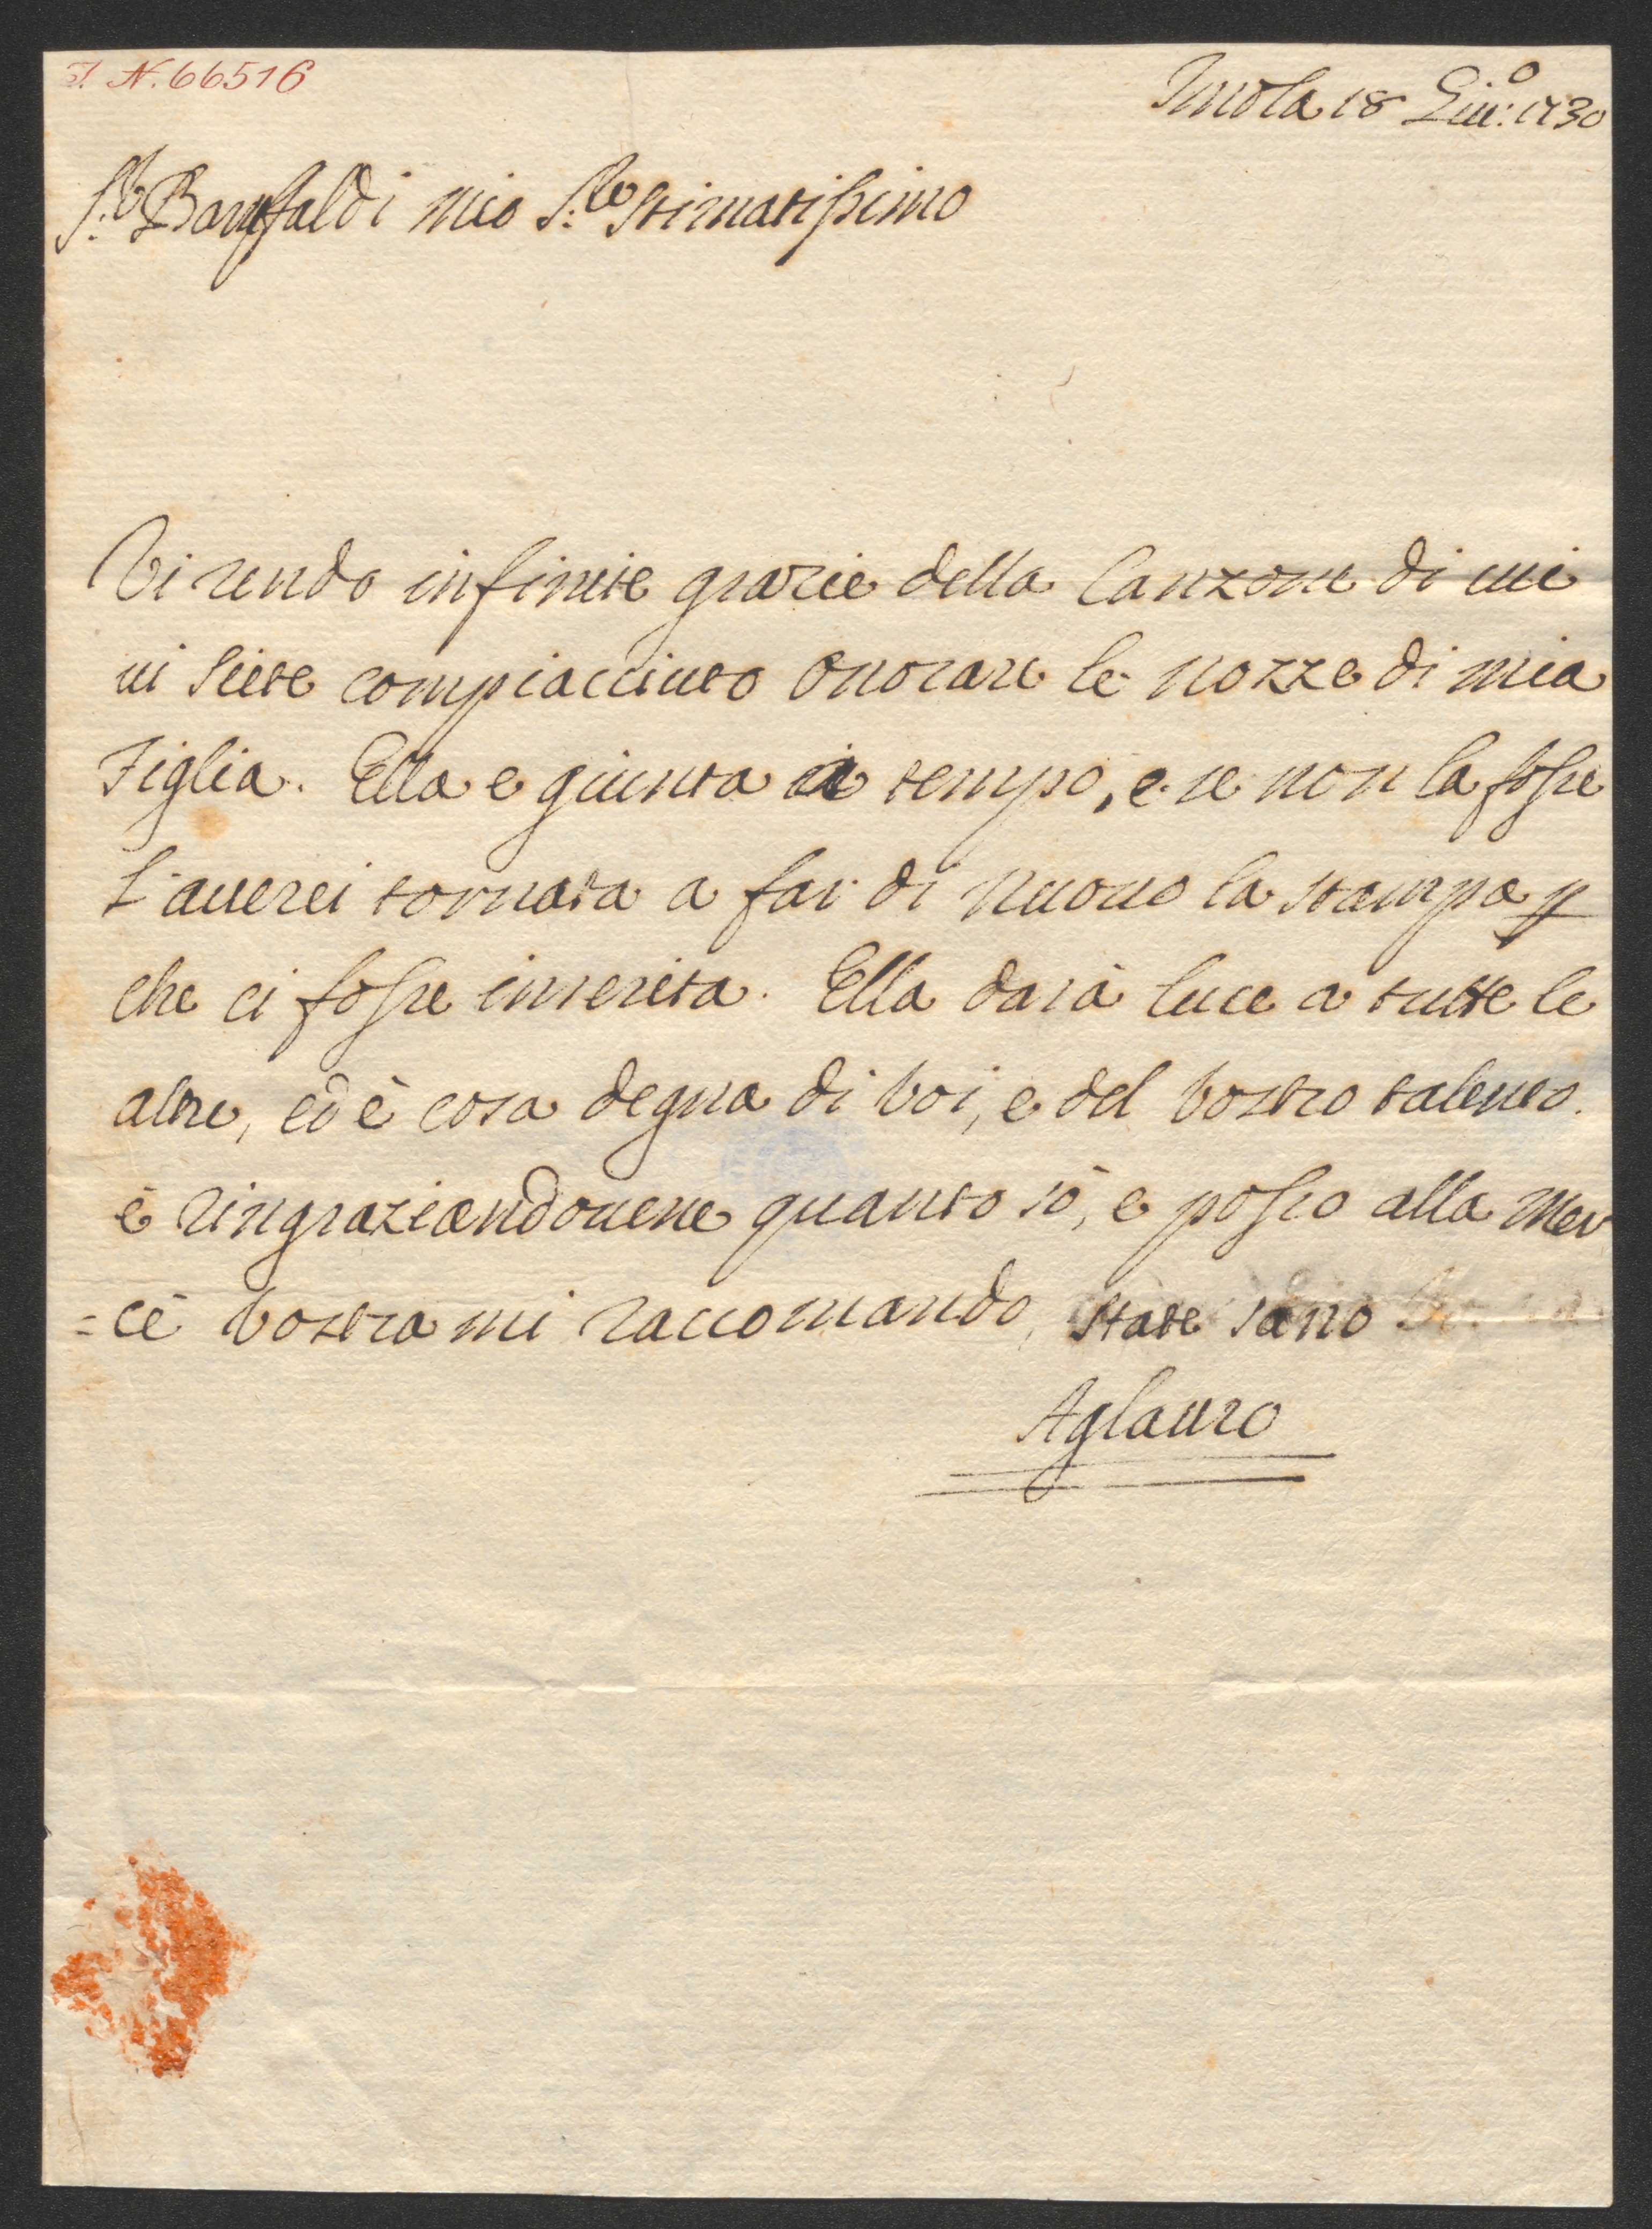 I. N. 66516
Imola 18 Giu:o 1730
S.r Baruffaldi mio S.re Stimatissimo
Vi rendo infinite grazie della Canzone di cui
vi siete compiacciuto onorare le nozze di mia
Figlia. Ella e giunta a tempo, e se non la fosse
L'auerei tornata a far di nuouo la stampa p
che ci fosse inserita. Ella darà luce a tutte le
altre, ed è cosa degna di Voi, e del Vostro talento.
è ringraziandouene quanto sò, e posso alla Mer
=cè Vostra mi raccomando, state sano
Aglauro